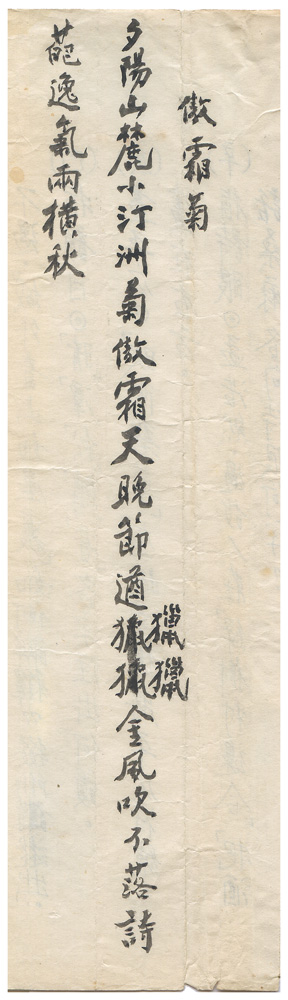 傲霜菊
夕陽山麓小汀洲菊傲霜天晚節遒獵獵金風吹不落詩
葩逸氣兩橫秋